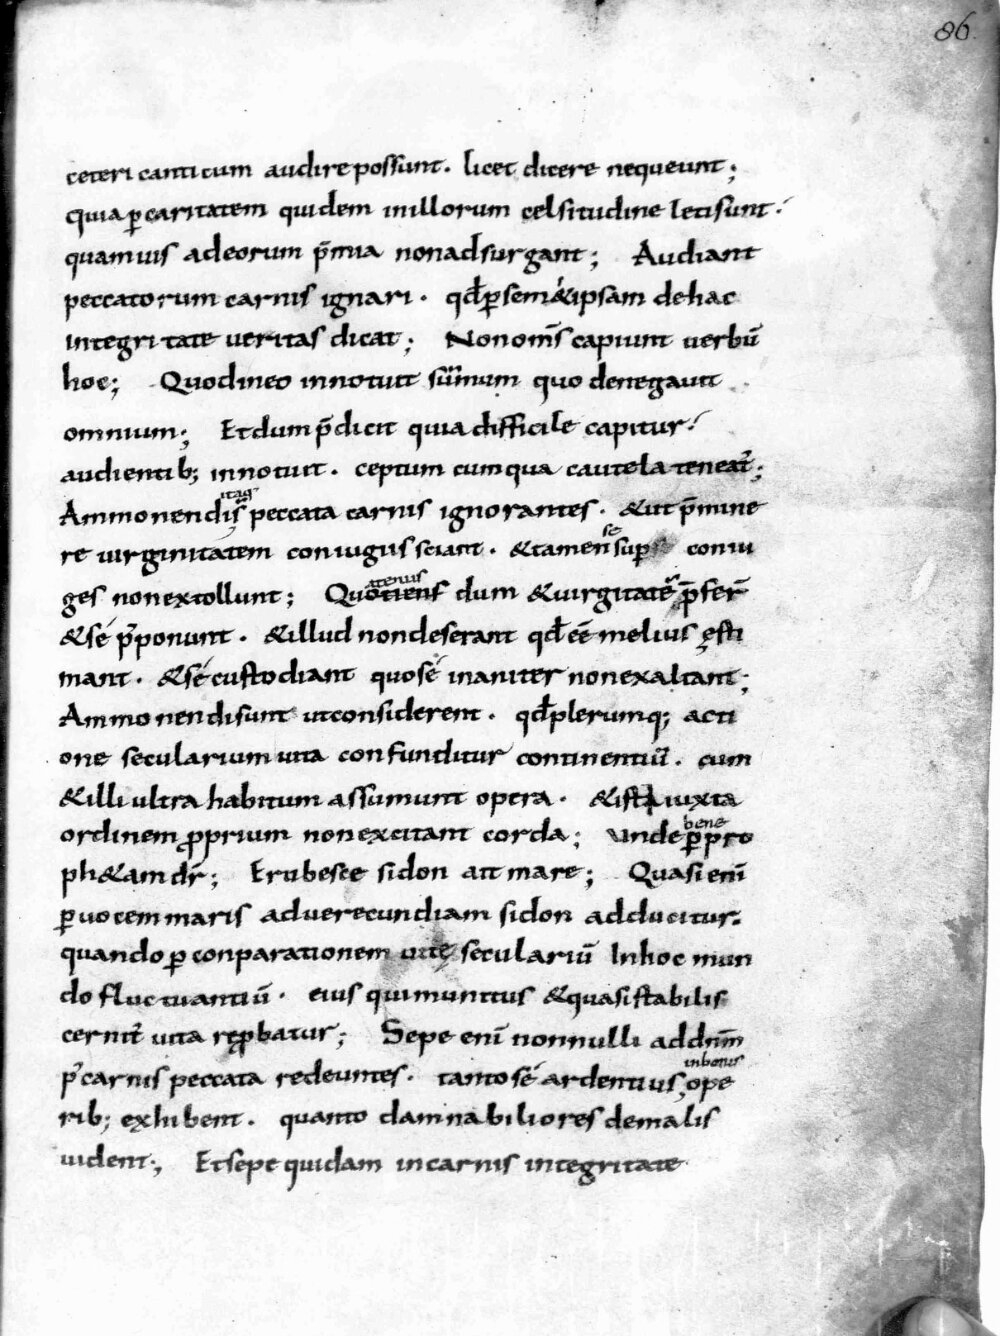 86
ceteri canticum audire possunt. licet dicere nequeunt;
quia ꝑ caritatem quidem in illorum celsitudine letisunt.
quamuis adeorum p̄mia non adsurgant; Audiant
peccatorum carnis ignari. qđ ꝑ sem&ipsam de hac
integritate ueritas dicat; Non om̄s capiunt uerbū
hoc; Quod ineo innotuit sūmum quo denegauit
omnium; Et dum p̄dicit quia difficile capitur.
audientib; innotuit. ceptum cum qua cautela teneat̄;
itaq
Ammonendis peccata carnis ignorantes. &ut p̄mine
re uirginitatem coniugiis sciant. &tamen se sup coniu
ges non extollunt; Quotiens dum &uirgitatē p̄fer̄
atenus
&sé p̄ponunt. &illud non deserant qđ eē melius ęsti
mant. &sé custodiant quo sé inaniter non exaltant;
Ammonendi sunt ut considerent. qđ plerumq; acti
one secularium uita confunditur continentiū. cum
&illi ultra habitum assumunt opera. &isti iuxta
ordinem ꝓprium non excitant corda; unde bene ꝑ pro
ph&am dr̄; Erubesce sidon ait mare; Quasi enī
ꝑ uocem maris ad uerecundiam sidon adducitur.
quando ꝑ conparationem uitę seculariū In hoc mun
do fluctuantiū. eius qui munitus &quasi stabilis
cernit̄ uita reꝓbatur; Sepe enī nonnulli ad dnm̄
p̄ carnis peccata redeuntes. tanto sé ardentius in bonis ope
rib; exhibent. quanto damnabiliores de malis
uident; Et sepe quidam in carnis integritate